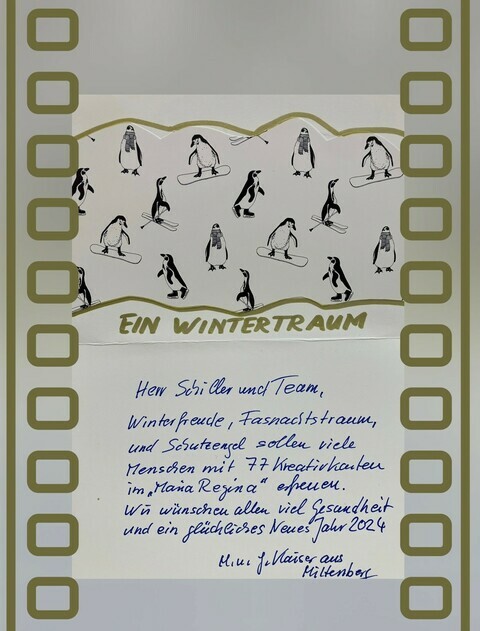 EIN WINTERTRAUM
Herr Schiller und Team,
Winterfreude, Fasnachtstraum,
und Schutzengel sollen viele
Menschen mit 77 Kreativkarten
im „Maria Regina" erfreuen.
Wir wünschen allen viel Gesundheit
und ein glückliches Neues Jahr 2024
M. u. J. Klaiser aus
Miltenberg